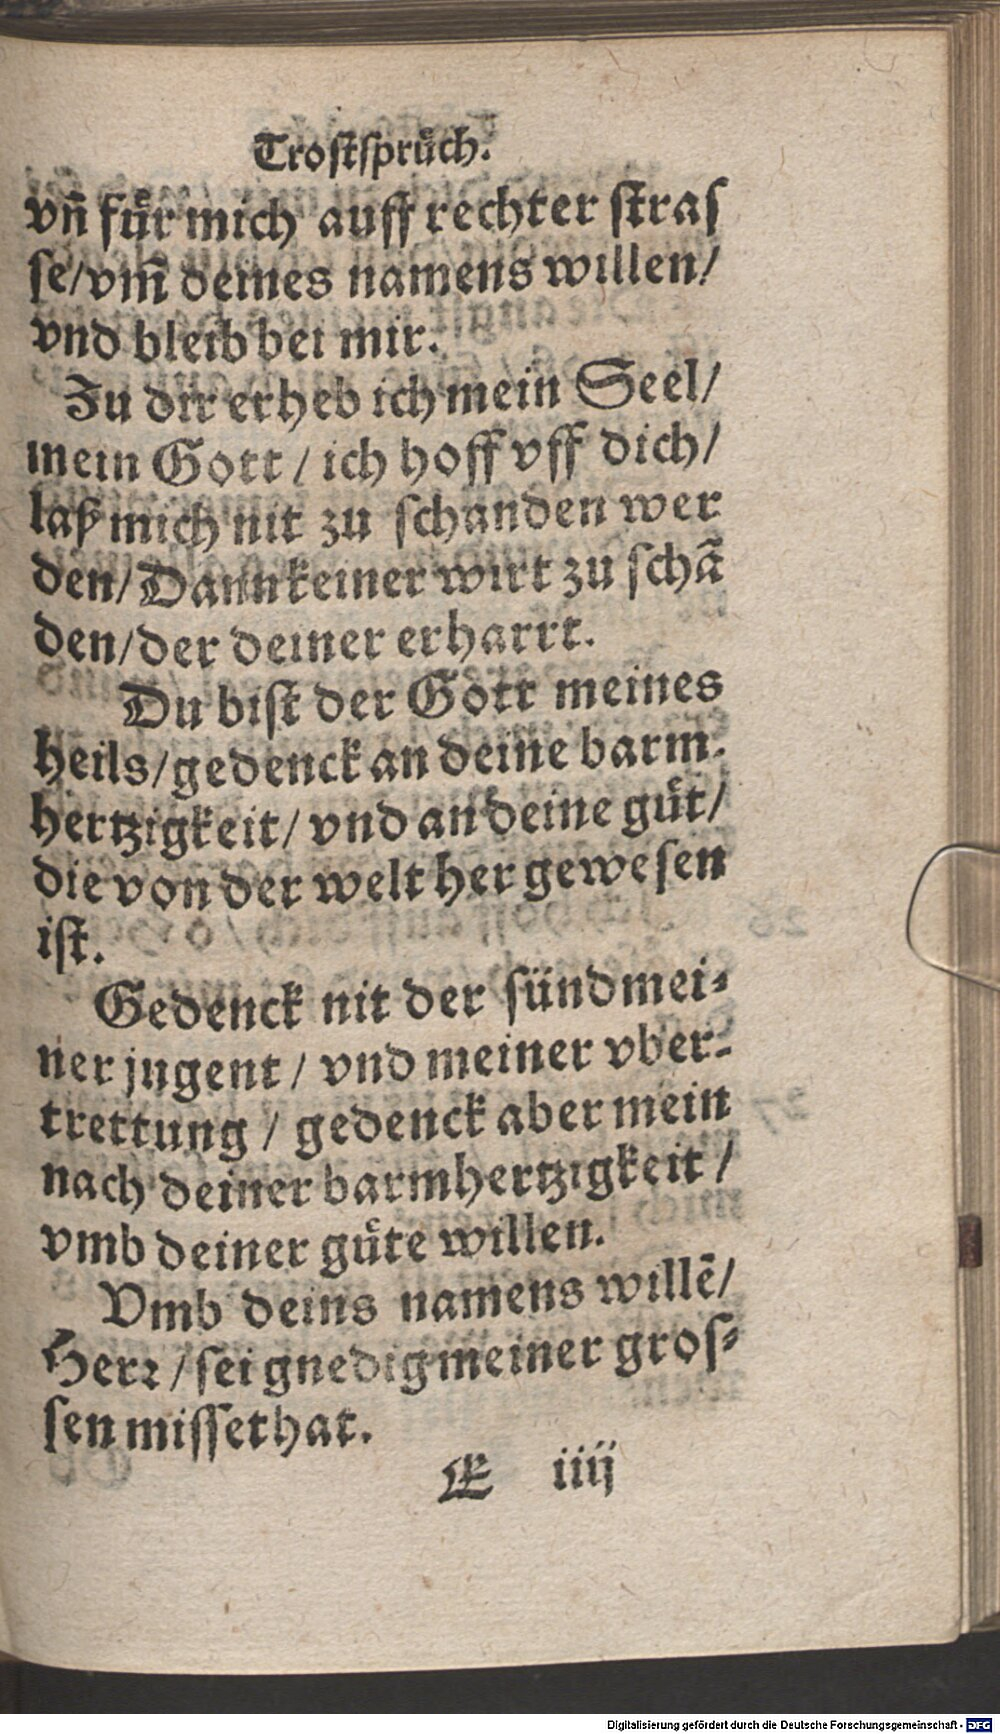 Trostsprüch.
vñ für mich auff rechter stras
se/vm̃ deines namens willen/
vnd bleib bei mir.
Zu dir erheb ich mein Seel/
mein Gott / ich hoff vff dich/
laß mich nit zu schanden wer
den/Dann keiner wirt zu schã
den/der deiner erharrt.
Du bist der Gott meines
heils/gedenck an deine barm-
hertzigkeit/ vnd an deine güt/
die von der welt her gewesen
ist.
Gedenck nit der sünd mei-
ner jugent / vnd meiner vber-
trettung / gedenck aber mein
nach deiner barmhertzigkeit /
vmb deiner güte willen.
Vmb deins namens willẽ/
Herr / sei gnedig meiner gros-
sen missethat.
E iiij
Digitalisierung gefördert durch die Deutsche Forschungsgemeinschaft - DFG